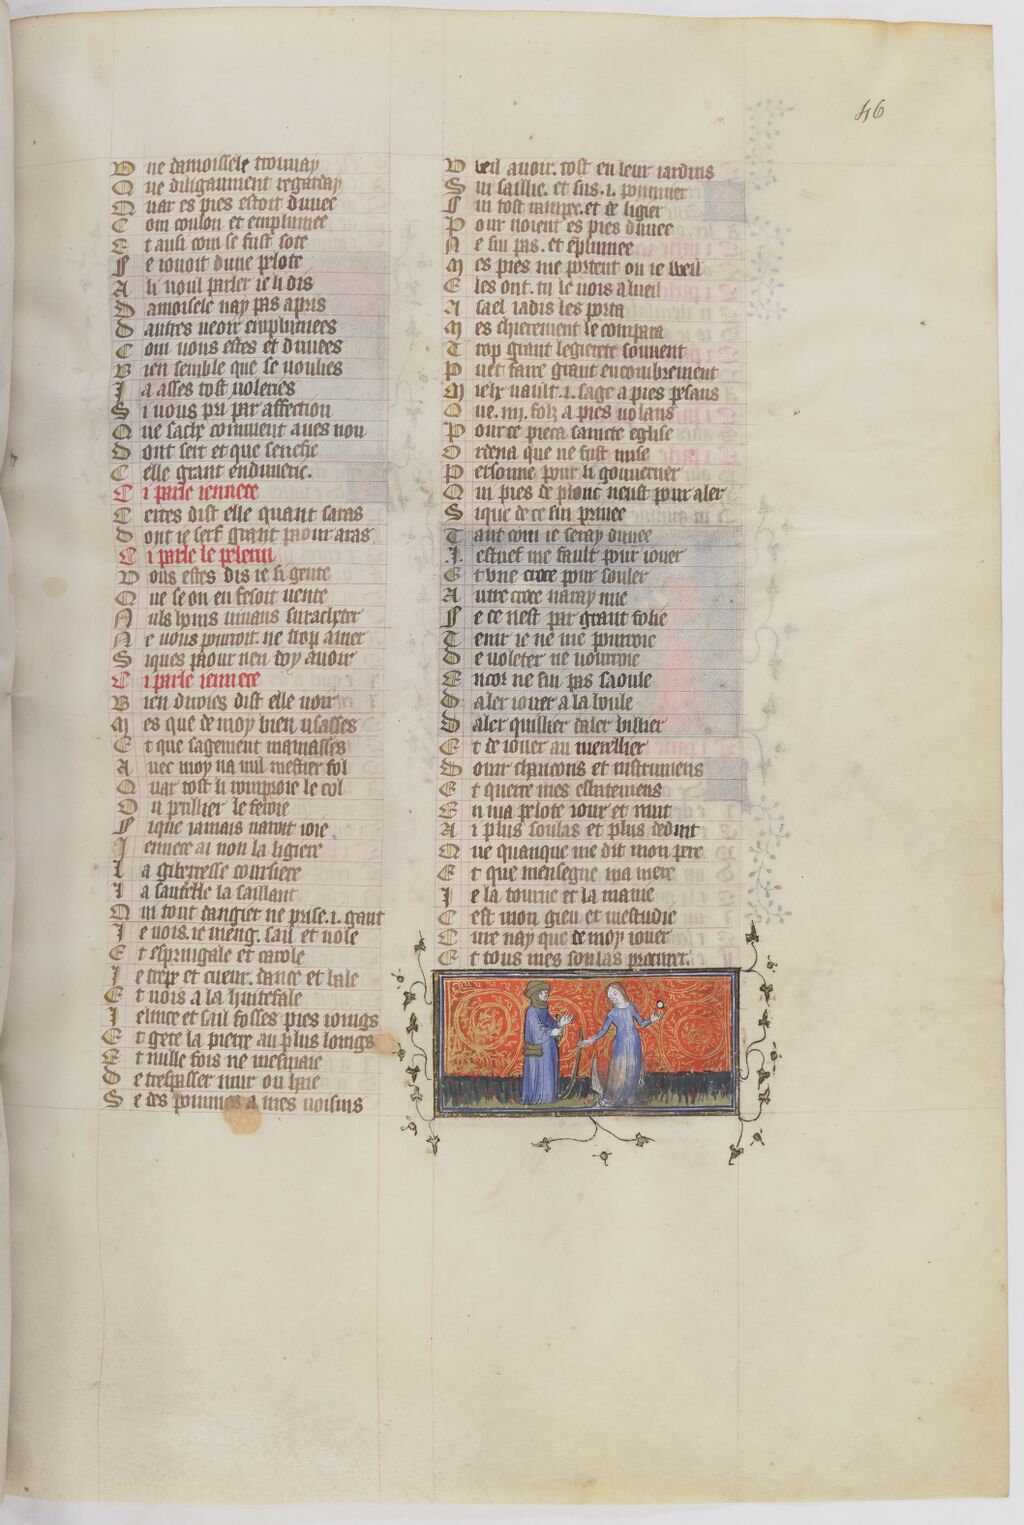 46
V ne damoisele trouuay
Q ue diligaument regarday
Q uar es pies estoit duuee
C om coulon et emplumee
E t ausi com se fust sote
S e iouoit dune pelote
A li uoul parler ie li dis
D amoisele nay pas apris
D autres ueoir emplumees
C om uous estes et duuees
B ien semble que se uoulies
J a asses tost uoleries
S i uous pri par affection
Q ue sache comment aues non
D ont seit et que senefie
C elle grant enduuerie.
C i parle iennece
C ertes dist elle quant saras
D ont ie serf grant paour aras
C i parle le pelerin
V ous estes dis ie si gente
Q ue se on en fesoit uente
N uls homs uiuans suracheter
N e uous pourroit. ne trop amer
S iques paour nen doy auoir
C i parle iennece
B ien diroies dist elle uoir
M es que de moy bien usasses
E t que sagement mamasses
A uec moy na nul mestier fol
Q uar tost li romproie le col
O u perillier le feroie
S ique iamais naroit ioie
J ennece ai non la ligiere
L a giberresse coursiere
L a sauterelle la saillant
Q ui tout dangier ne prise .i. gant
J e uois. ie uieng. sail et uole
E t espringale et carole
J e trepe et cueur. dance et bale
E t uois a la huitefale
J e luite et sail fosses pies ioings
E t gete la pierre au plus loings
E t nulle fois ne mesmaie
D e trespasser mur ou haie
S e des pommes a mes uoisins
V ueil auoir. tost en leur iardins
S ui saillie. et sus .i. pommier
S ui tost rampee. et de ligier
P our noient es pies duuee
N e sui pas. et emplumee
M es pies me portent ou ie weil
E les ont. tu le uois a lueil
A sael iadis les porta
M es chierement le compara
T rop grant legierete souuent
P uet faire grant encombrement
M iex uault .i. sage a pies pesans
Q ue .iiij. folz a pies uolans
P our ce pieca saincte eglise
O rdena que ne fust mise
P ersonne pour li gouuerner
Q ui pies de plonc neust pour aler
S ique de ce sui priuee
T ant com ie seray duuee
.J. estuef me fault pour iouer
E t vne croce pour souler
A utre croce naray mie
S e ce nest par grant folie
T enir ie ne me pourroie
D e uoleter ne uourroie
E ncor ne sui pas saoule
D aler iouer a la boule
D aler quillier daler billier
E t de iouer au merellier
D ouir chancons et instrumens
E t querre mes esbatemens
E n ma pelote iour et nuit
A i plus soulas et plus deduit
Q ue quanque me dit mon pere
E t que mensegne ma mere
J e la tourne et la manie
C est mon gieu et mestudie
C ure nay que de moy iouer
E t tous mes soulas procurer.